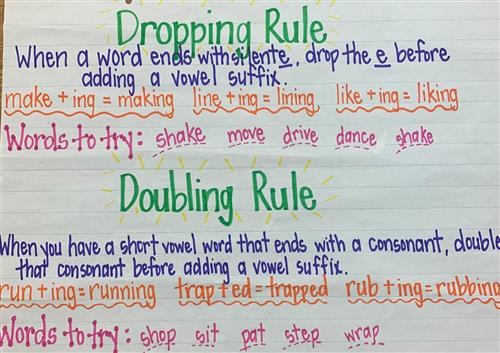 Dropping Rule
When a word ends with silent e, drop the e before
adding a vowel suffix.
make + ing = making line + ing = lining like + ing = liking
Words to try: shake move drive dance shake
Doubling Rule
When you have a short vowel word that ends with a consonant, double
that consonant before adding a vowel suffix.
run + ing = running trap + ed = trapped rub + ing = rubbing
Words to try: shop sit pat step wrap